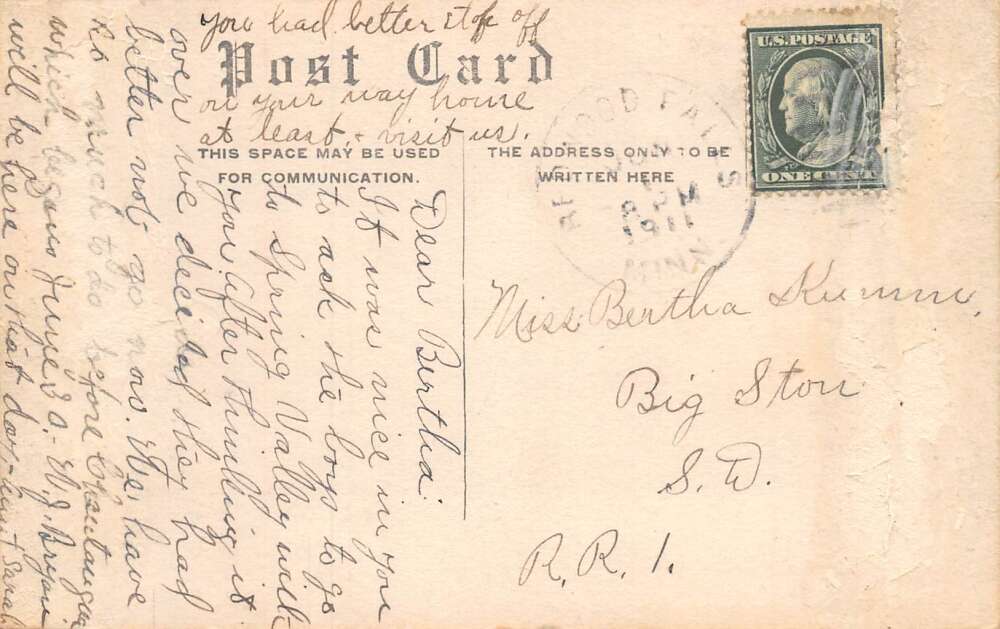 Post Card
THIS SPACE MAY BE USED
FOR COMMUNICATION.
THE ADDRESS ONLY TO BE
WRITTEN HERE
U.S. POSTAGE
ONE CENT
REDWOOD FALLS
PM
1911
MINN.
Miss Bertha Kumm,
Big Ston
S.D.
R.R.1.
Dear Bertha:
It was nice in you
to ask the boys to go
to Spring Valley with
you after thinking it
over we decided they had
better not go now. We have
so much to do before Chautauqua
which begins June 30 - W.J. Bryan
will be here on that day - Aunt Sarah
You had better stop off
on your way home
at least, & visit us.